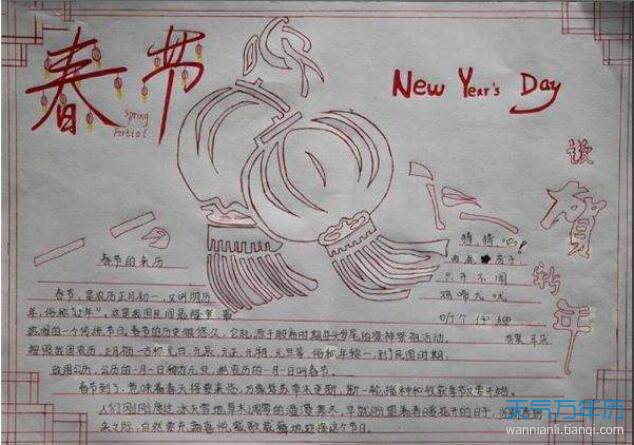 春节
Spring
Festial
New Year's Day
恭
贺
新
年
春节的来历
猜猜吧!
只开不闻
春节，是农历正月初一，又叫阴历
年，俗称"过年"，这是我国民间最隆重、最
热闹的一个传统节日。春节的历史很悠久，它起源于殷商时期年头岁尾的祭神祭祖活动。
按照我国农历，正月初一古称元日、元辰、元正、元朔、元旦等，俗称年初一，到了民国时期，
改用公历，公历的一月一日称为元旦，把农历的一月一日叫春节。
春节到了，意味着春天将要来临，万象复苏草木更新，新一轮播种和收获季节又要开始。
人们刚刚度过冰天雪地草木凋零的漫漫寒冬，早就盼望着春暖花开的日子，
来之际，自然要充满喜悦载歌载舞地迎接这个节日。
天气万年历
wannianli.tianqi.com